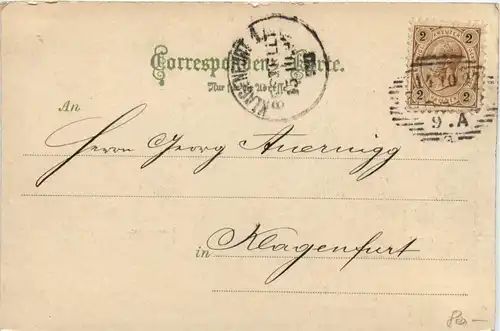 Correspondenz-Karte.
Nur für die Adresse.
KLAGENFURT
2 2
2 2
9. A
An
Herrn Georg Auernigg
in Klagenfurt